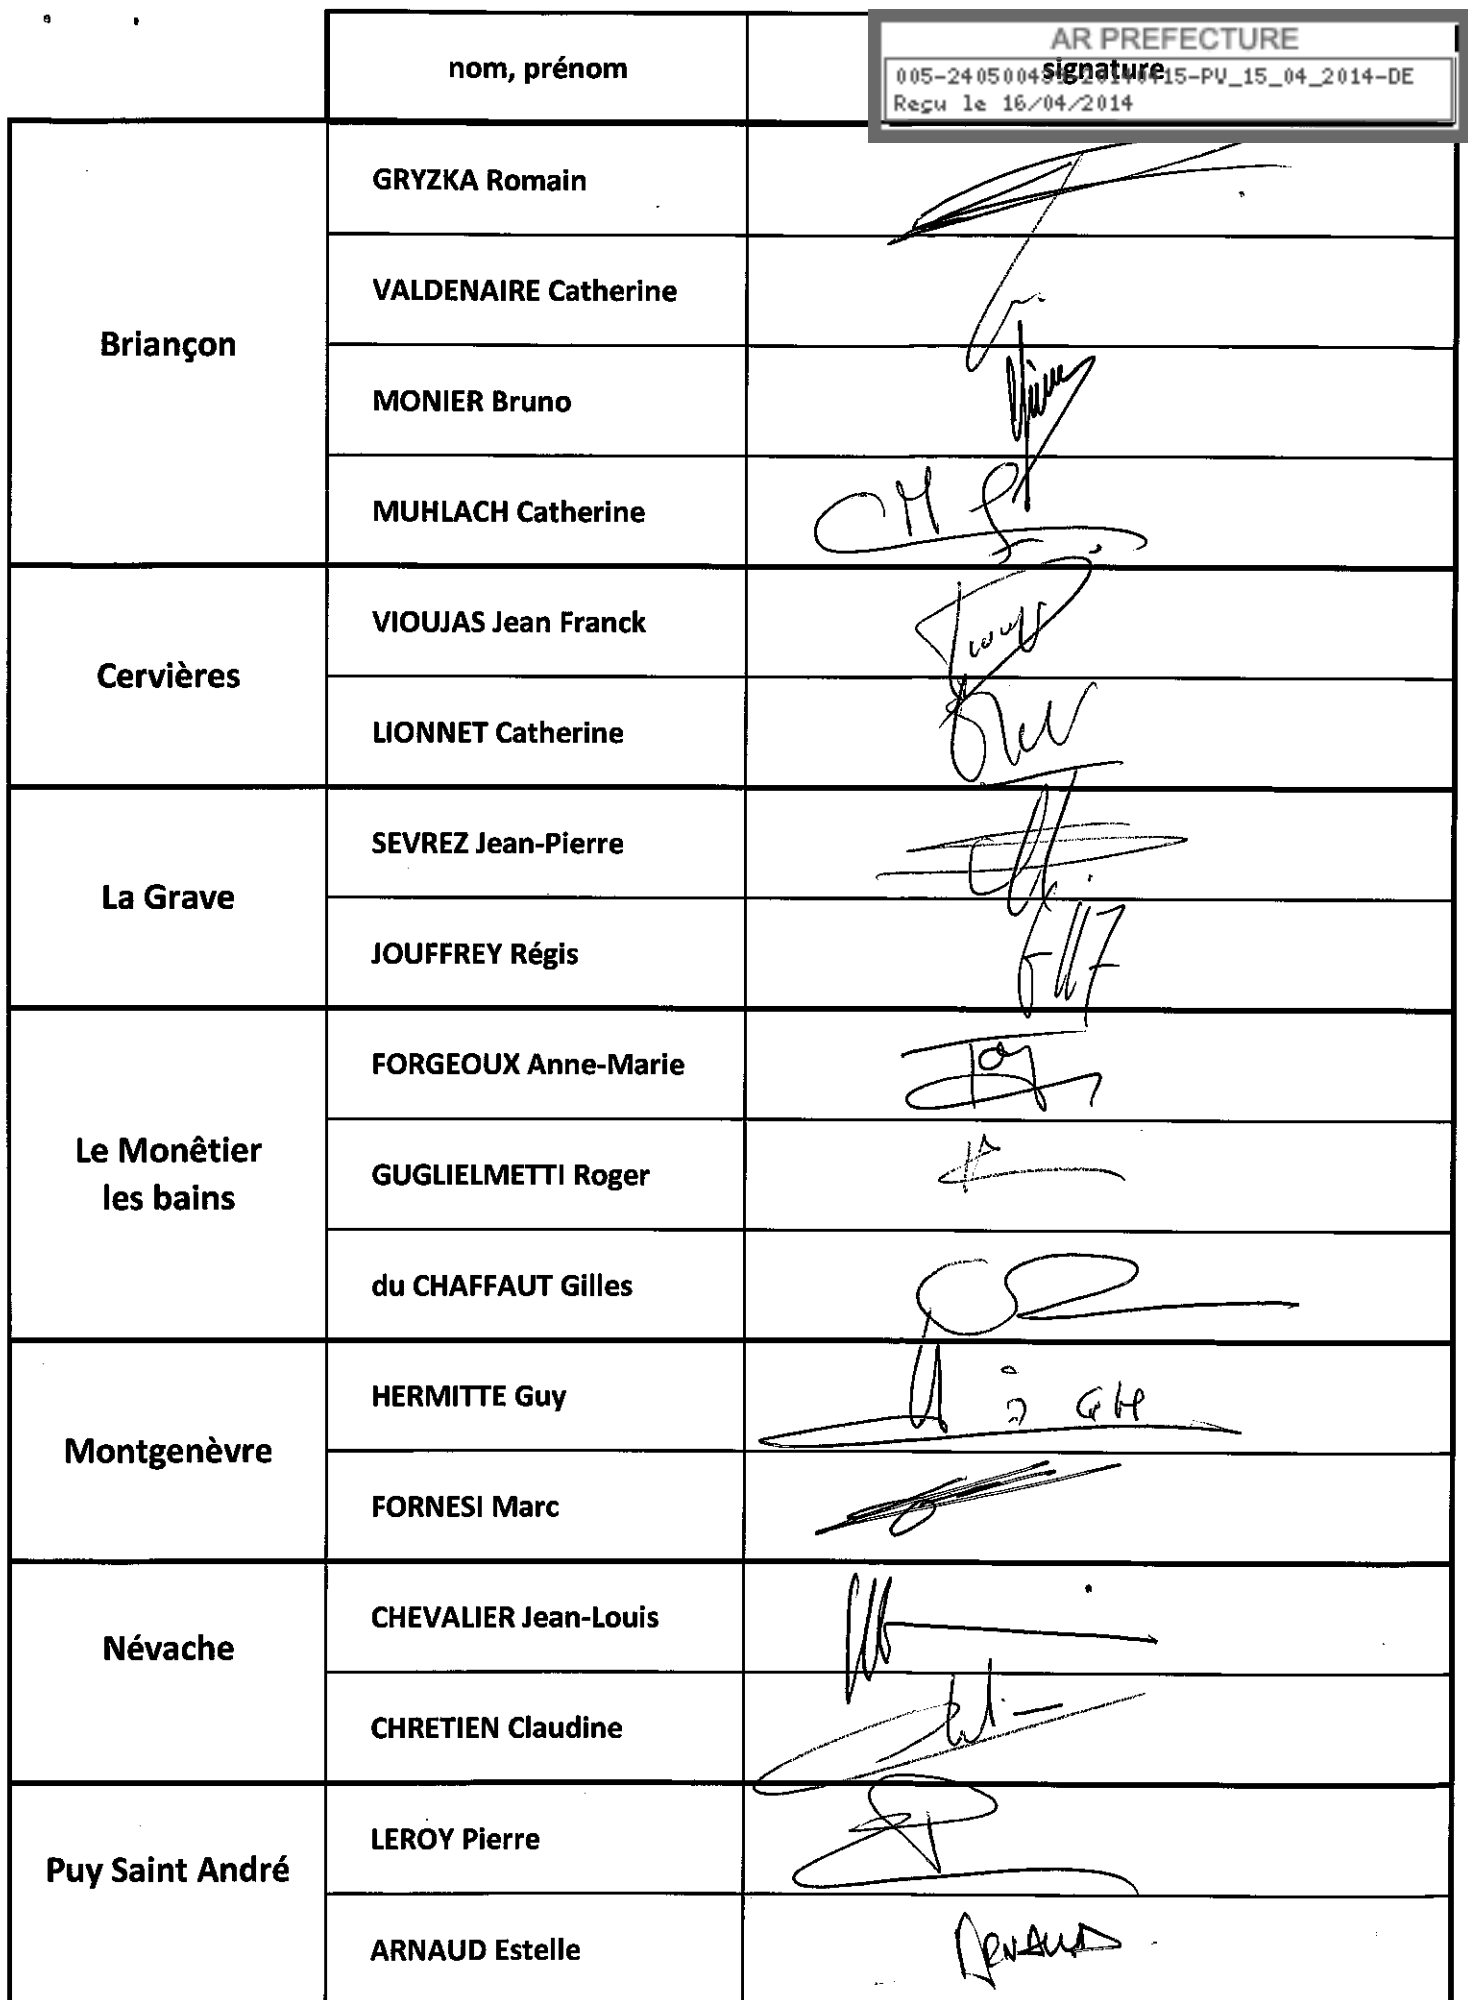 AR PREFECTURE
nom, prénom
signature
PV_15_04_2014-DE
Reçu le 16/04/2014
Briançon
GRYZKA Romain
VALDENAIRE Catherine
MONIER Bruno
MUHLACH Catherine
CM
Cervières
VIOUJAS Jean Franck
LIONNET Catherine
La Grave
SEVREZ Jean-Pierre
JOUFFREY Régis
Le Monêtier
les bains
FORGEOUX Anne-Marie
GUGLIELMETTI Roger
du CHAFFAUT Gilles
Montgenèvre
HERMITTE Guy
GH
FORNESI Marc
Névache
CHEVALIER Jean-Louis
CHRETIEN Claudine
Puy Saint André
LEROY Pierre
ARNAUD Estelle
ARNAUD